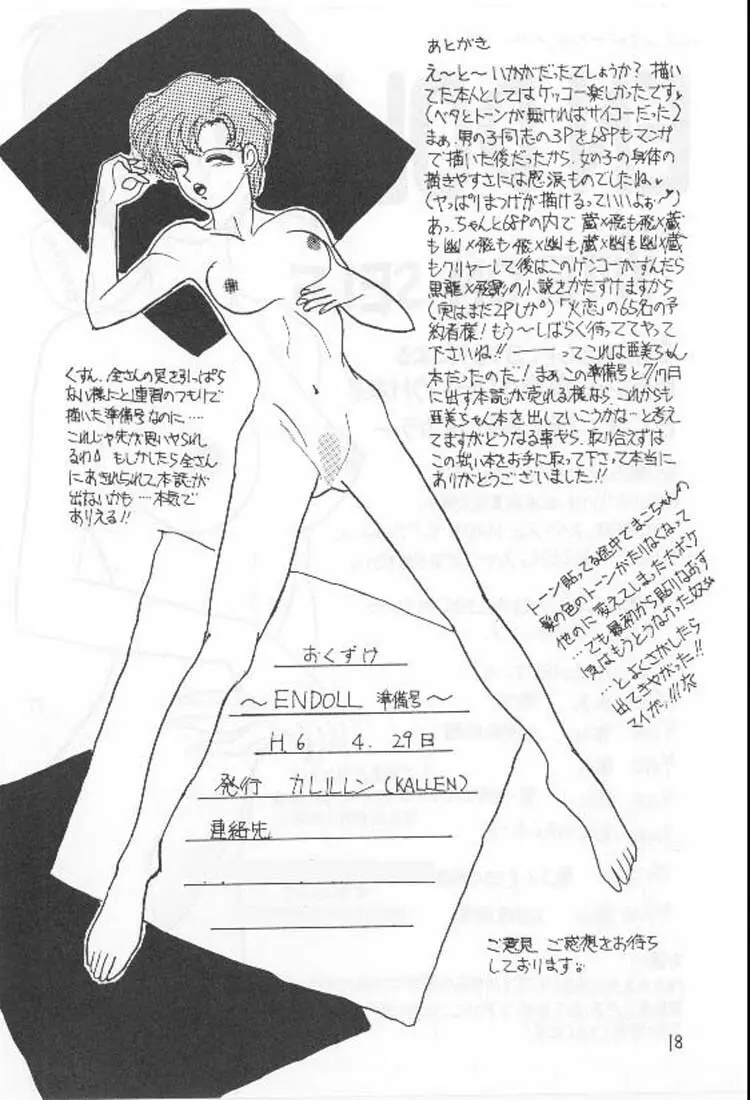 あとがき
え〜と〜いかがだったでしょうか? 描い
てた本人としてはケッコー楽しかったです
(ベタとトーンが無ければサイコーだった)
まぁ、男の子同志の3Pを68Pもマンガ
で描いた後だったから、女の子の身体の
描きやすさには感涙ものでしたね。
(やっぱりまつげが描けるっていいよぉ〜)
あっ、ちゃんと68Pの内で 蔵×飛も飛×蔵
も幽×飛も飛×幽も、蔵×幽も幽×蔵
もクリヤーして後はこのゲンコーがすんだら
黒龍×飛影の小説をかたずけますから
(実はまだ2Pしか)「火恋」の65名の予
約者様! もう〜しばらく待っててやって
下さいね!! ――ってこれは亜美ちゃん
本だったのだ! まぁ、この準備号と7/17日
に出す本誌が売れる様なら、これからも
亜美ちゃん本を出していこうかな…と考え
てますがどうなる事やら、取り合えずは
この拙い本をお手に取って下さって本当に
ありがとうございました!!
くすん、全さんの足を引っぱら
ない様にと練習のつもりで
描いた準備号なのに‥‥
これじゃ先が思いやられ
るわ もしかしたら全さん
にあきれられて本誌が
出ないかも…本気で
ありえる!!
トーン貼ってる途中でまーちゃんの
髪の色のトーンがたりなくなって
他のに変えてしまった大ボケ
…でも最初から貼りなおす
気はもうとうなかった奴
…とよくさがしたら
出てきやがった!!
マイガッ!!!
おくずけ
〜ENDOLL 準備号〜
H.6. 4. 29日
発行 カレルレン(KALLEN)
連絡先
ご意見 ご感想をお待ち
しております。
18